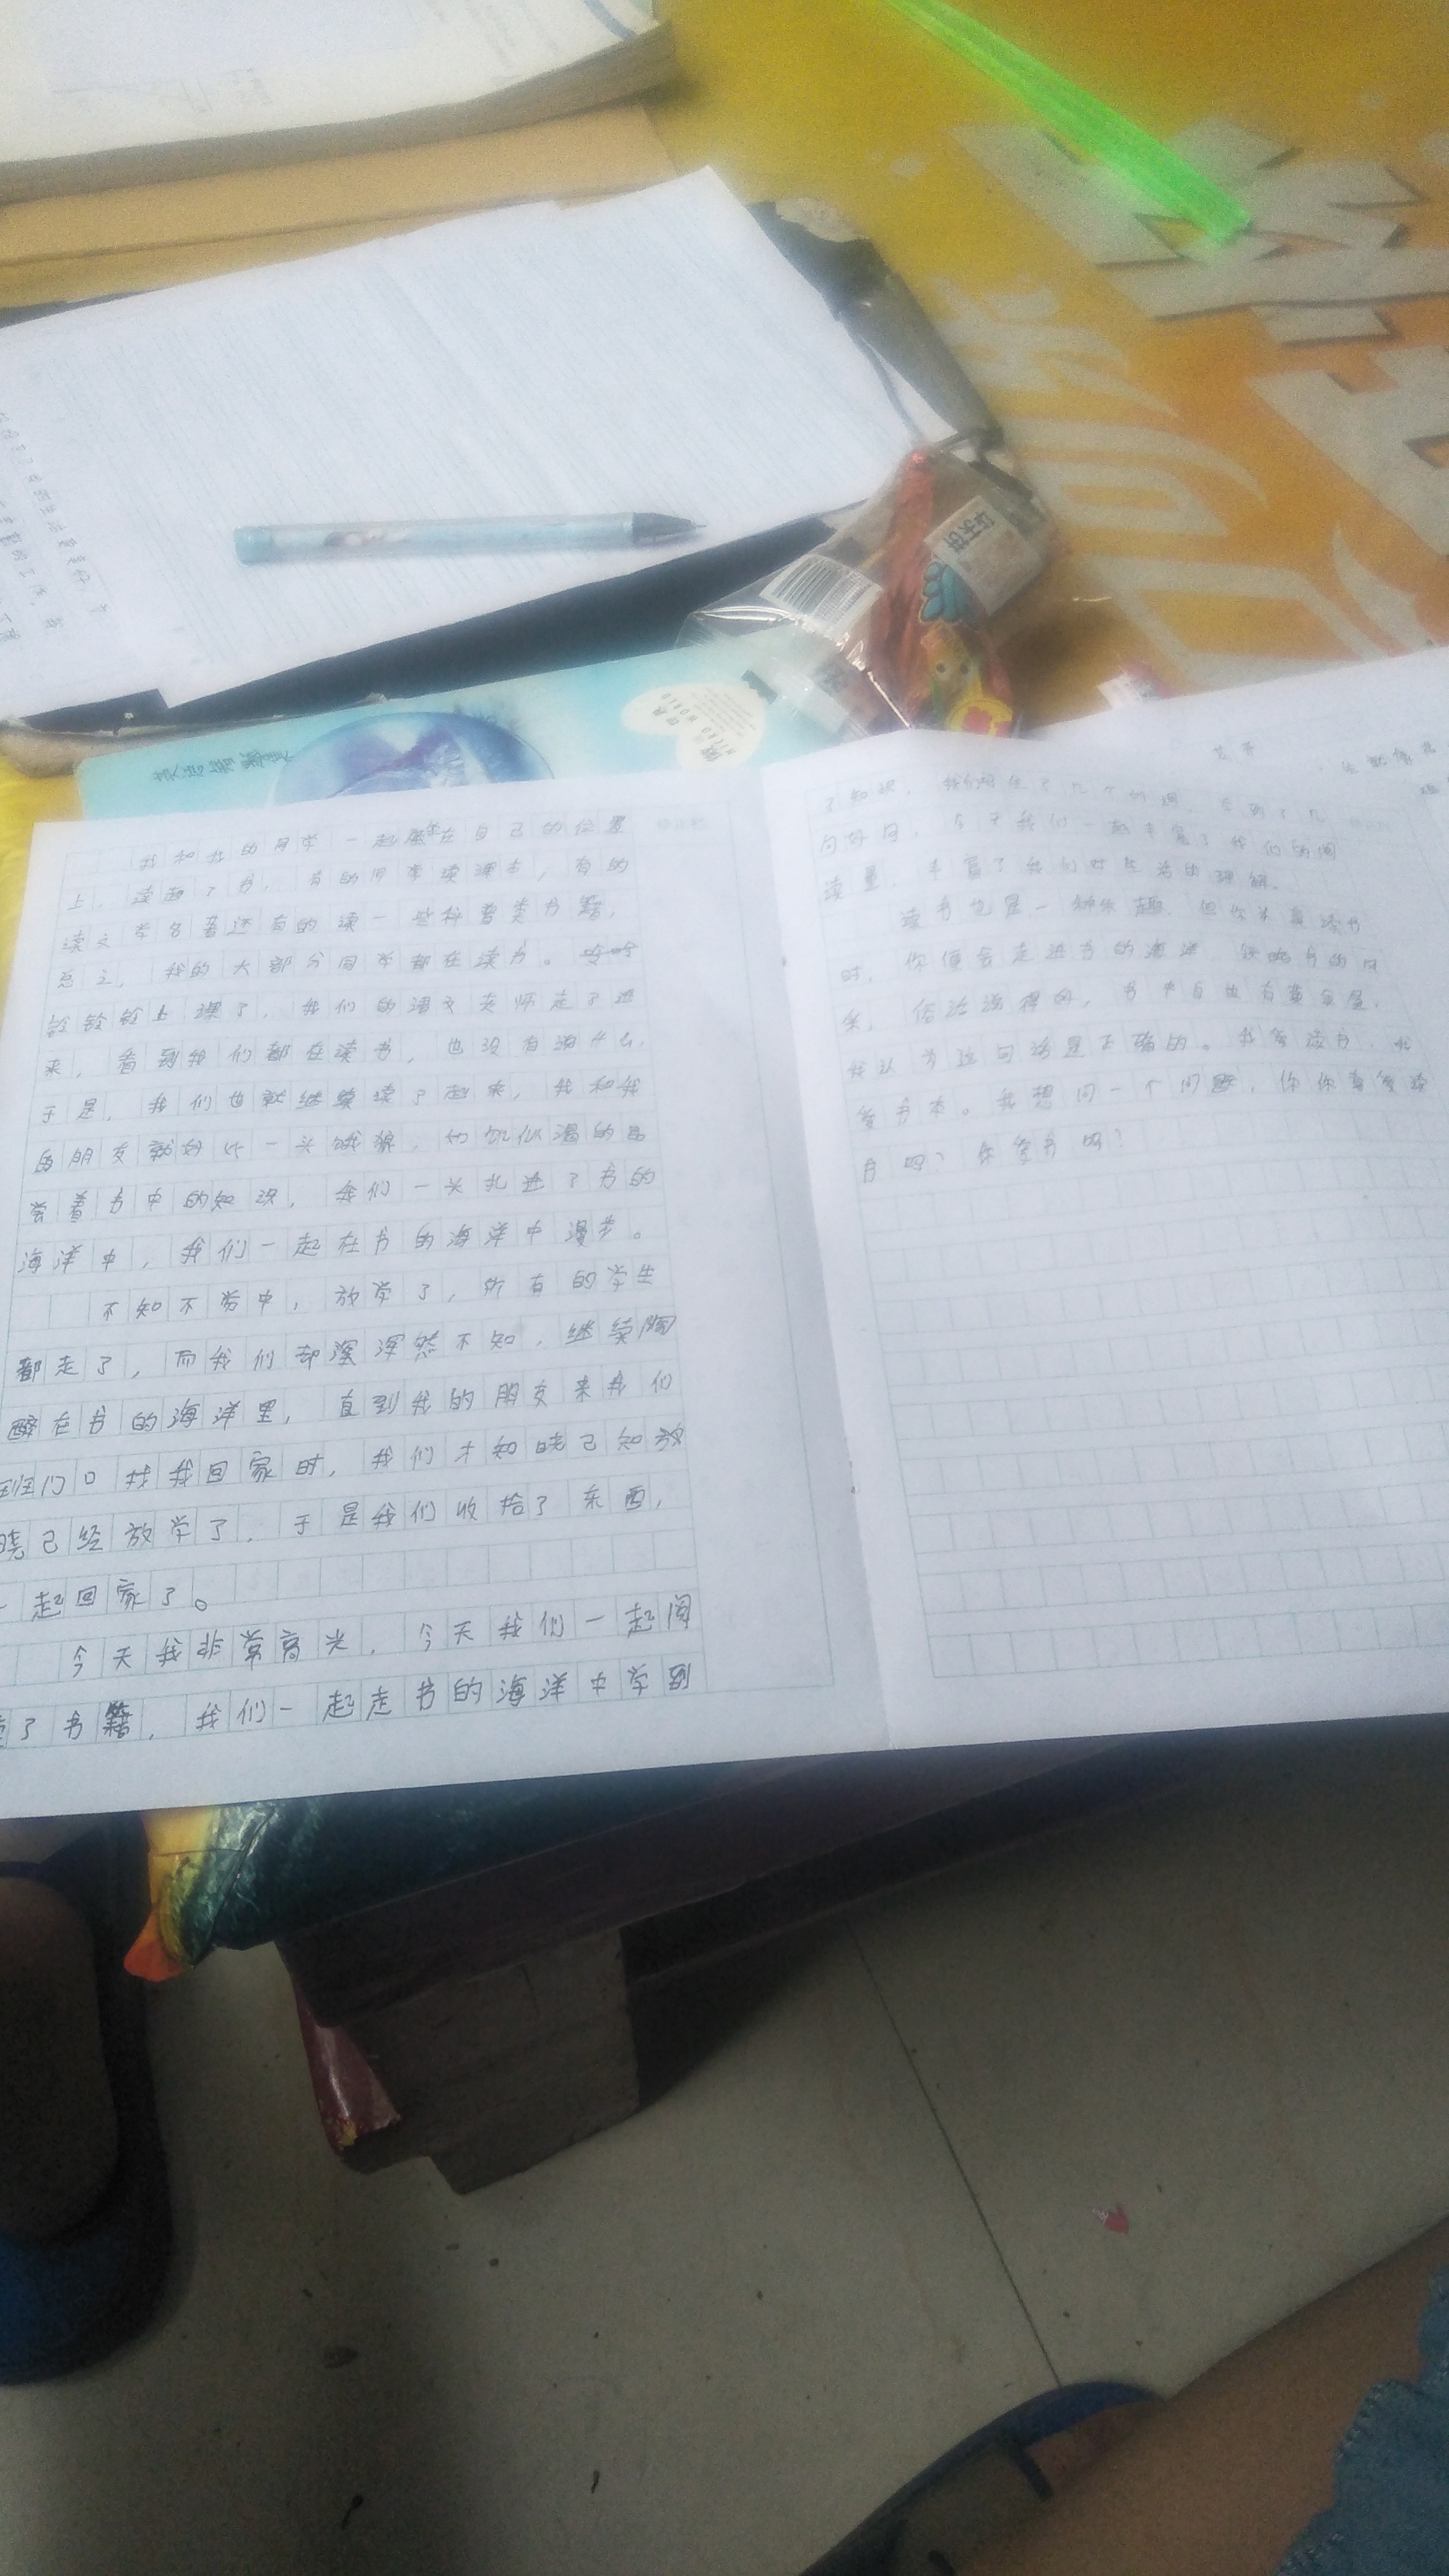 我和我的同学一起坐在自己的位置
上，读起了书，有的同学读课本，有的
读文学名著还有的读一些科普类书籍，
总之，我的大部分同学都在读书。
铃铃铃上课了，我们的语文老师走了进
来，看到我们都在读书，也没有说什么，
于是，我们也就继续读了起来，我和我
的朋友就好比一头饿狼，如饥似渴的品
尝着书中的知识，我们一头扎进了书的
海洋中，我们一起在书的海洋中漫步。
不知不觉中，放学了，所有的学生
都走了，而我们却浑浑然不知，继续陶
醉在书的海洋里，直到我的朋友来我们
班门口找我回家时，我们才知晓已知放
晓已经放学了，于是我们收拾了东西，
一起回家了。
今天我非常高兴，今天我们一起阅
了书籍，我们一起走书的海洋中学到
了知识，我们 了几个 ， 到了几
句好句，今天我们一起丰富了我们的阅
读量，丰富了我们对生活的理解。
读书也是一种乐趣，但你认真读书
时，你便会走进书的海洋，领略书的风
采，俗话说得好，书中自由有黄金屋，
我认为这句话是正确的。我爱读书，我
爱书本。我想问一个问题，你你喜爱读
书吗？你爱书吗？
微观世界
MICRO WORLD